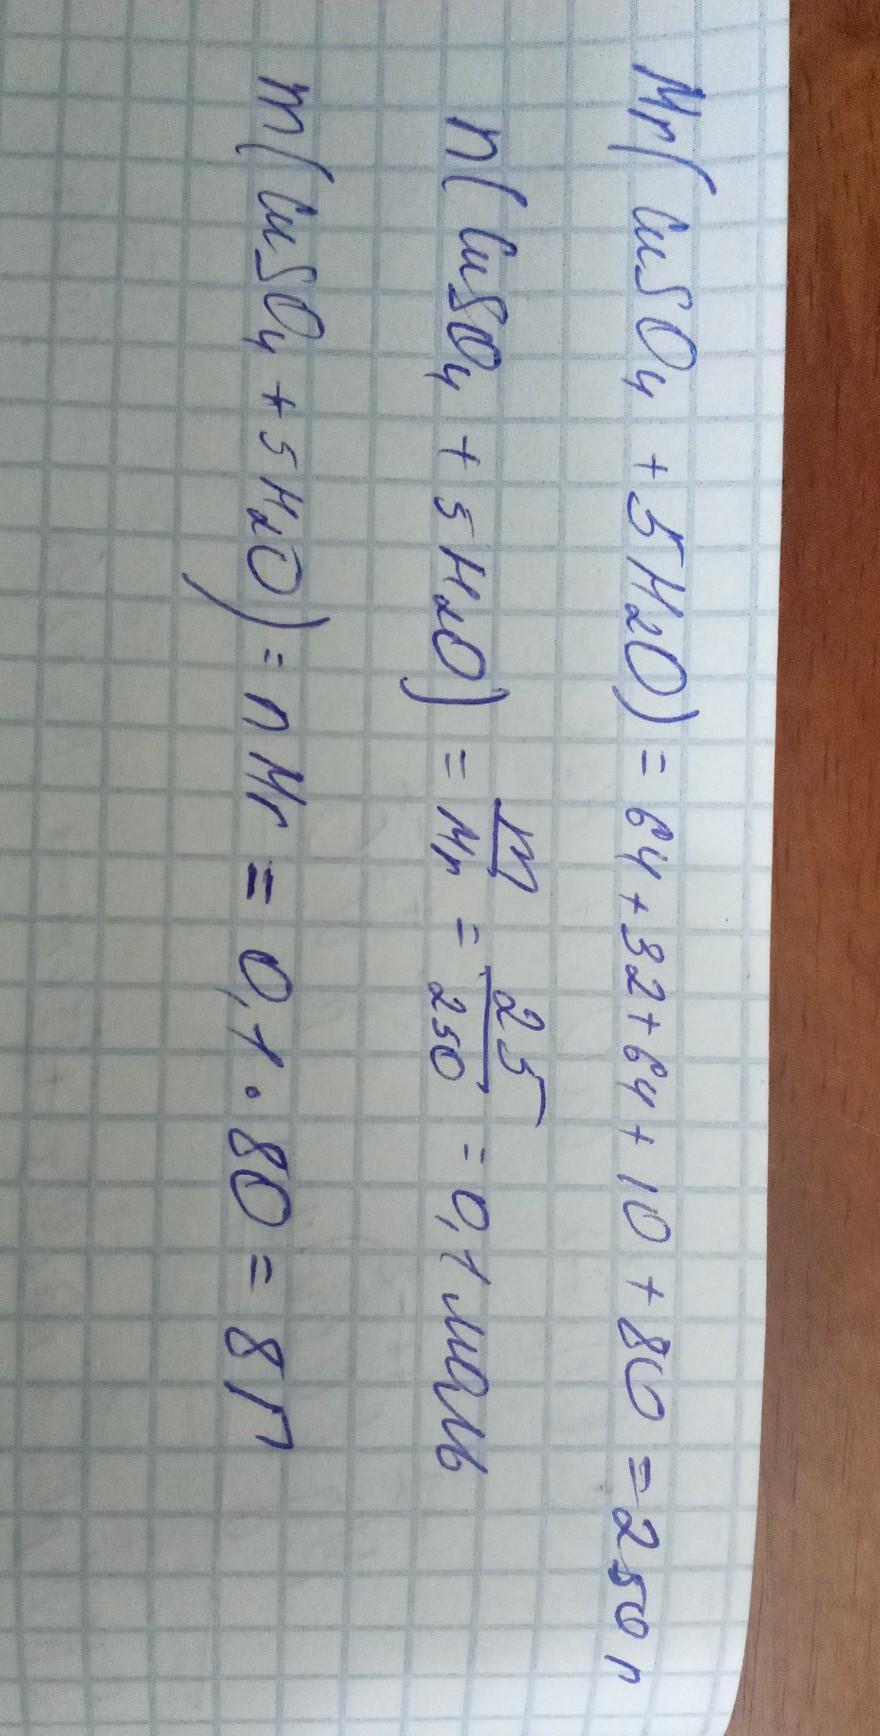 Mr(CuSO₄ + 5H₂O) = 64+32+64+10+80 = 250 г
n(CuSO₄ + 5H₂O) = m/Mr = 25/250 = 0,1 моль
m(CuSO₄ + 5H₂O) = n Mr = 0,1 · 80 = 8 г